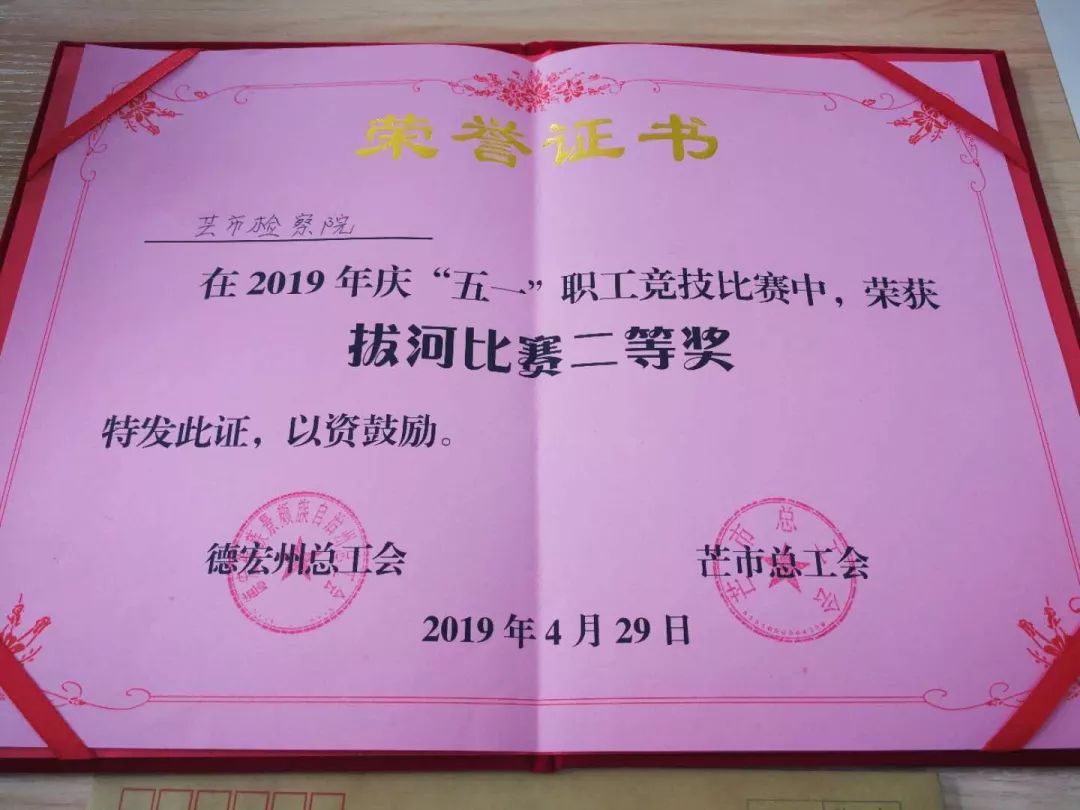 荣誉证书
芒市检察院
在 2019 年庆“五一”职工竞技比赛中，荣获
拔河比赛二等奖
特发此证，以资鼓励。
景颇族自治州总工会
德宏州总工会
芒市总工会
芒市总工会
2019 年 4 月 29 日